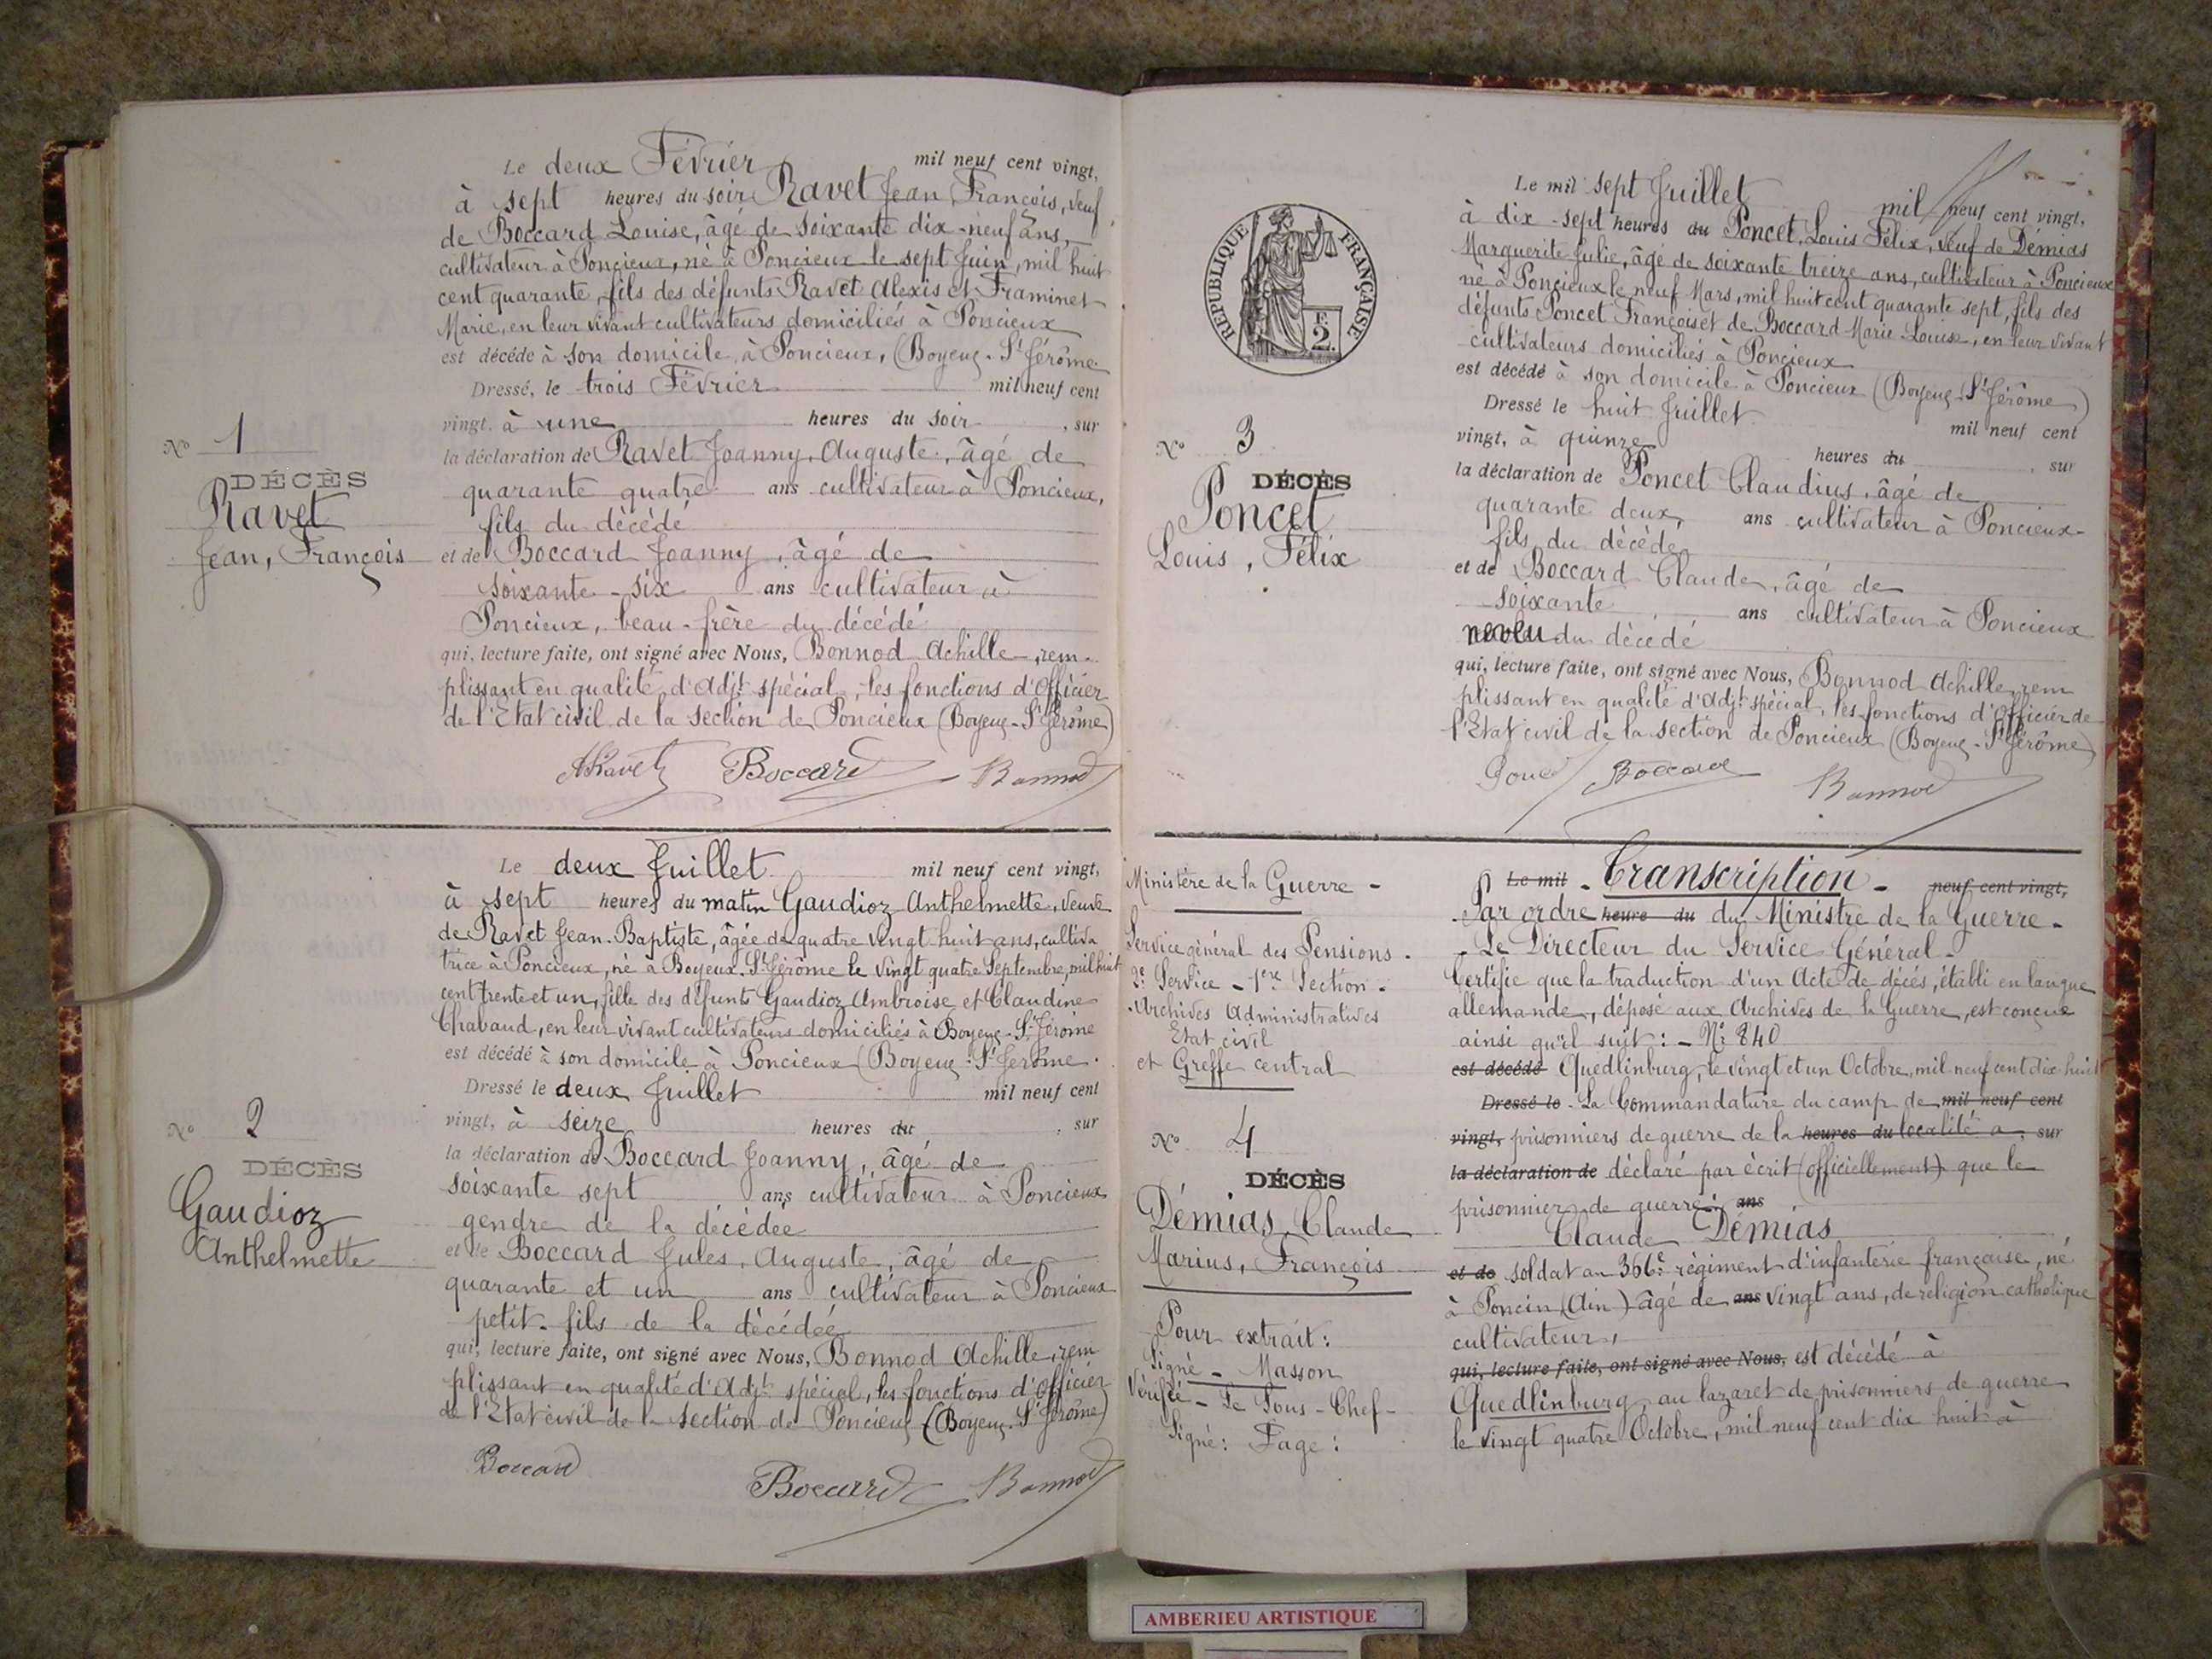 Le deux Février mil neuf cent vingt,
à sept heures du soir Ravet Jean François, veuf
de Boccard Louise, âgé de soixante dix-neuf ans,
cultivateur à Poncieux, né à Poncieux le sept Juin, mil huit
cent quarante, fils des défunts Ravet Alexis et Framinet
Marie, en leur vivant cultivateurs domiciliés à Poncieux
est décédé à son domicile, à Poncieux, (Boyeux-St Jérôme.
Dressé, le trois Février mil neuf cent
vingt, à une heures du soir, sur
la déclaration de Ravet Joanny, Auguste, âgé de
quarante quatre ans cultivateur à Poncieux,
fils du décédé
et de Boccard Joanny, âgé de
soixante-six ans cultivateur à
Poncieux, beau-frère du décédé
qui, lecture faite, ont signé avec Nous, Bonnod Achille, rem-
plissant en qualité d'Adjt spécial, les fonctions d'Officier
de l'Etat civil de la section de Poncieux (Boyeux-St Jérôme)
ARavet Boccard Bonnod
No 1
DÉCÈS
Ravet
Jean, François
Le deux Juillet mil neuf cent vingt,
à sept heures du matin Gaudioz Anthelmette, veuve
de Ravet Jean-Baptiste, âgée de quatre vingt huit ans, cultiva
trice à Poncieux, né à Boyeux-St Jérôme le vingt quatre Septembre, mil huit
cent trente et un, fille des défunts Gaudioz Ambroise et Claudine
Chabaud, en leur vivant cultivateurs domiciliés à Boyeux-St Jérôme
est décédé à son domicile à Poncieux (Boyeux-St Jérôme.
Dressé le deux Juillet mil neuf cent
vingt, à seize heures du, sur
la déclaration de Boccard Joanny, âgé de
soixante sept ans cultivateur à Poncieux
gendre de la décédée
et de Boccard Jules, Auguste, âgé de
quarante et un ans cultivateur à Poncieux
petit-fils de la décédée
qui, lecture faite, ont signé avec Nous, Bonnod Achille, rem
plissant en qualité d'Adjt spécial, les fonctions d'Officier
de l'Etat civil de la section de Poncieux (Boyeux-St Jérôme)
Boccard Boccard Bonnod
No 2
DÉCÈS
Gaudioz
Anthelmette
RÉPUBLIQUE FRANÇAISE
F.
2.
Le mil sept Juillet mil neuf cent vingt,
à dix-sept heures du Poncet, Louis Félix, veuf de Démias
Marguerite Julie, âgé de soixante treize ans, cultivateur à Poncieux
né à Poncieux le neuf Mars, mil huit cent quarante sept, fils des
défunts Poncet François et de Boccard Marie-Louise, en leur vivant
cultivateurs domiciliés à Poncieux
est décédé à son domicile à Poncieux (Boyeux-St Jérôme)
Dressé le huit Juillet mil neuf cent
vingt, à quinze heures du, sur
la déclaration de Poncet Claudius, âgé de
quarante deux, ans cultivateur à Poncieux-
fils du décédé
et de Boccard Claude, âgé de
soixante ans cultivateur à Poncieux
neveu du décédé
qui, lecture faite, ont signé avec Nous, Bonnod Achille, rem
plissant en qualité d'Adjt spécial, les fonctions d'Officier de
l'Etat civil de la section de Poncieux (Boyeux-St Jérôme)
Boccard Bonnod
No 3
DÉCÈS
Poncet
Louis, Félix
Ministère de la Guerre-
Service général des Pensions.
2e Service-1ère Section-
Archives Administratives
Etat civil
et Greffe central
No 4
DÉCÈS
Démias, Claude
Marius, François
Pour extrait:
Signé-Masson
Vérifié-Le Sous-Chef-
Signé: Fage:
Le mil-Transcription-neuf cent vingt,
Par ordre heure du du Ministre de la Guerre-
Le Directeur du Service Général-
Certifie que la traduction d'un Acte de décès, établi en langue
allemande, déposé aux Archives de la Guerre, est conçue
ainsi qu'il suit:-No 840
est décédé Quedlinburg, le vingt et un Octobre, mil neuf cent dix huit
Dressé le-La Commandature du camp de mil neuf cent
vingt, prisonniers de guerre de la heures du localité a, sur
la déclaration de déclaré par écrit (officiellement) que le
prisonnier de guerre: ans
Claude Démias
et de soldat au 366e régiment d'infanterie française, né
à Poncin (Ain) âgé de ans vingt ans, de religion catholique
cultivateur,
qui, lecture faite, ont signé avec Nous, est décédé à
Quedlinburg, au lazaret de prisonniers de guerre
le vingt quatre Octobre, mil neuf cent dix huit à
AMBERIEU ARTISTIQUE